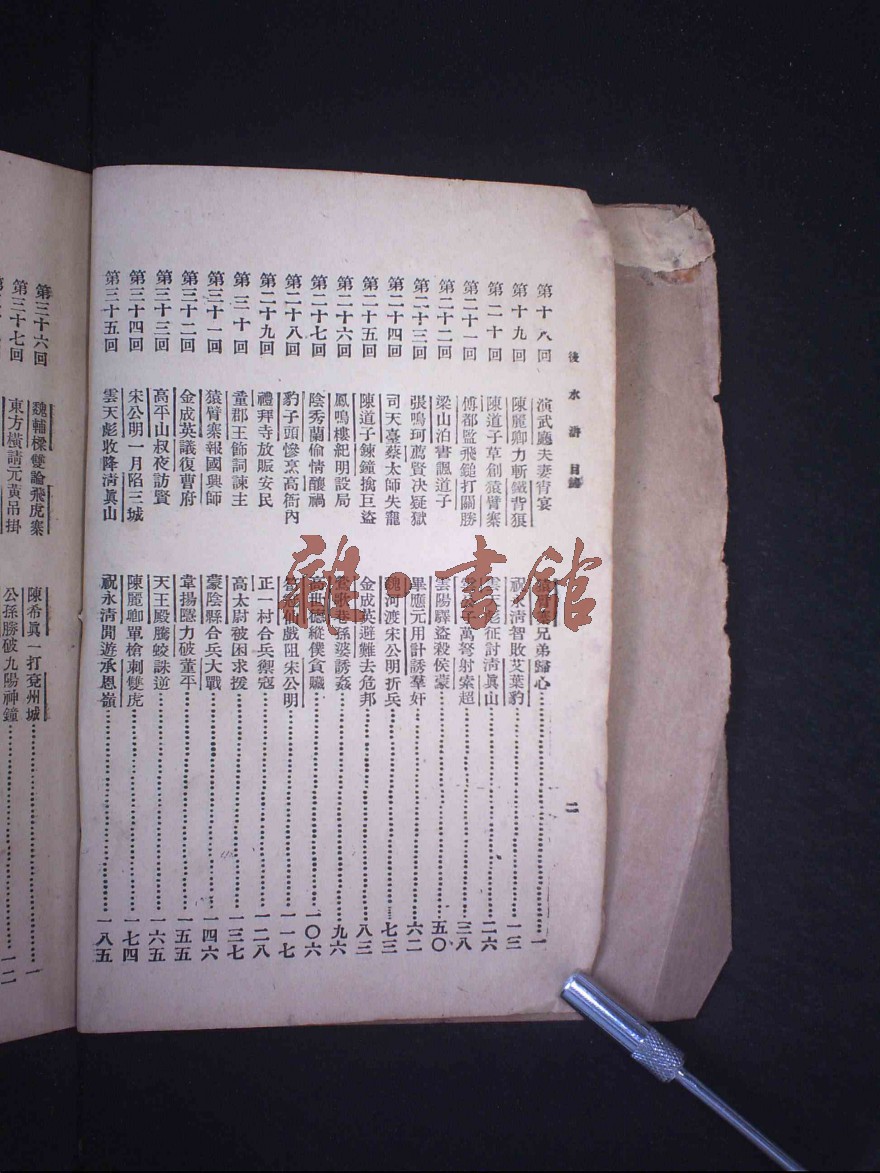 後水滸 目錄 二
第十八回 演武廳夫妻宵宴 兄弟歸心 一
第十九回 陳麗卿力斬鐵背狼 祝永清智敗艾葉豹 一三
第二十回 陳道子草創猿臂寨 征討淸眞山 二六
第二十一回 傅都監飛鎚打關勝 萬弩射索超 三八
第二十二回 梁山泊書諷道子 雲陽驛盜殺侯蒙 五〇
第二十三回 張鳴珂薦賢決疑獄 畢應元用計誘羣奸 六二
第二十四回 司天臺蔡太師失寵 魏河渡宋公明折兵 七三
第二十五回 陳道子鍊鐘擒巨盜 金成英避難去危邦 八三
第二十六回 鳳鳴樓紀明設局 巷孫婆誘姦 九六
第二十七回 陰秀蘭偷情釀禍 高世德縱僕貪贓 一〇六
第二十八回 豹子頭慘烹高衙內 笋冠仙戲阻宋公明 一一七
第二十九回 禮拜寺放賑安民 正一村合兵禦寇 一二八
第三十回 童郡王飾詞諫主 高太尉被困求援 一三七
第三十一回 猿臂寨報國興師 蒙陰縣合兵大戰 一四六
第三十二回 金成英議復曹府 韋揚隱力破董平 一五五
第三十三回 高平山叔夜訪賢 天王殿騰蛟誅逆 一六五
第三十四回 宋公明一月陷三城 陳麗卿單槍刺雙虎 一七四
第三十五回 雲天彪收降淸眞山 祝永淸閒遊承恩嶺 一八五
第三十六回 魏輔樑雙論飛虎寨 陳希眞一打兗州城 一
第三十七回 東方橫請元黃吊掛 公孫勝破九陽神鐘 一二
雜·書館